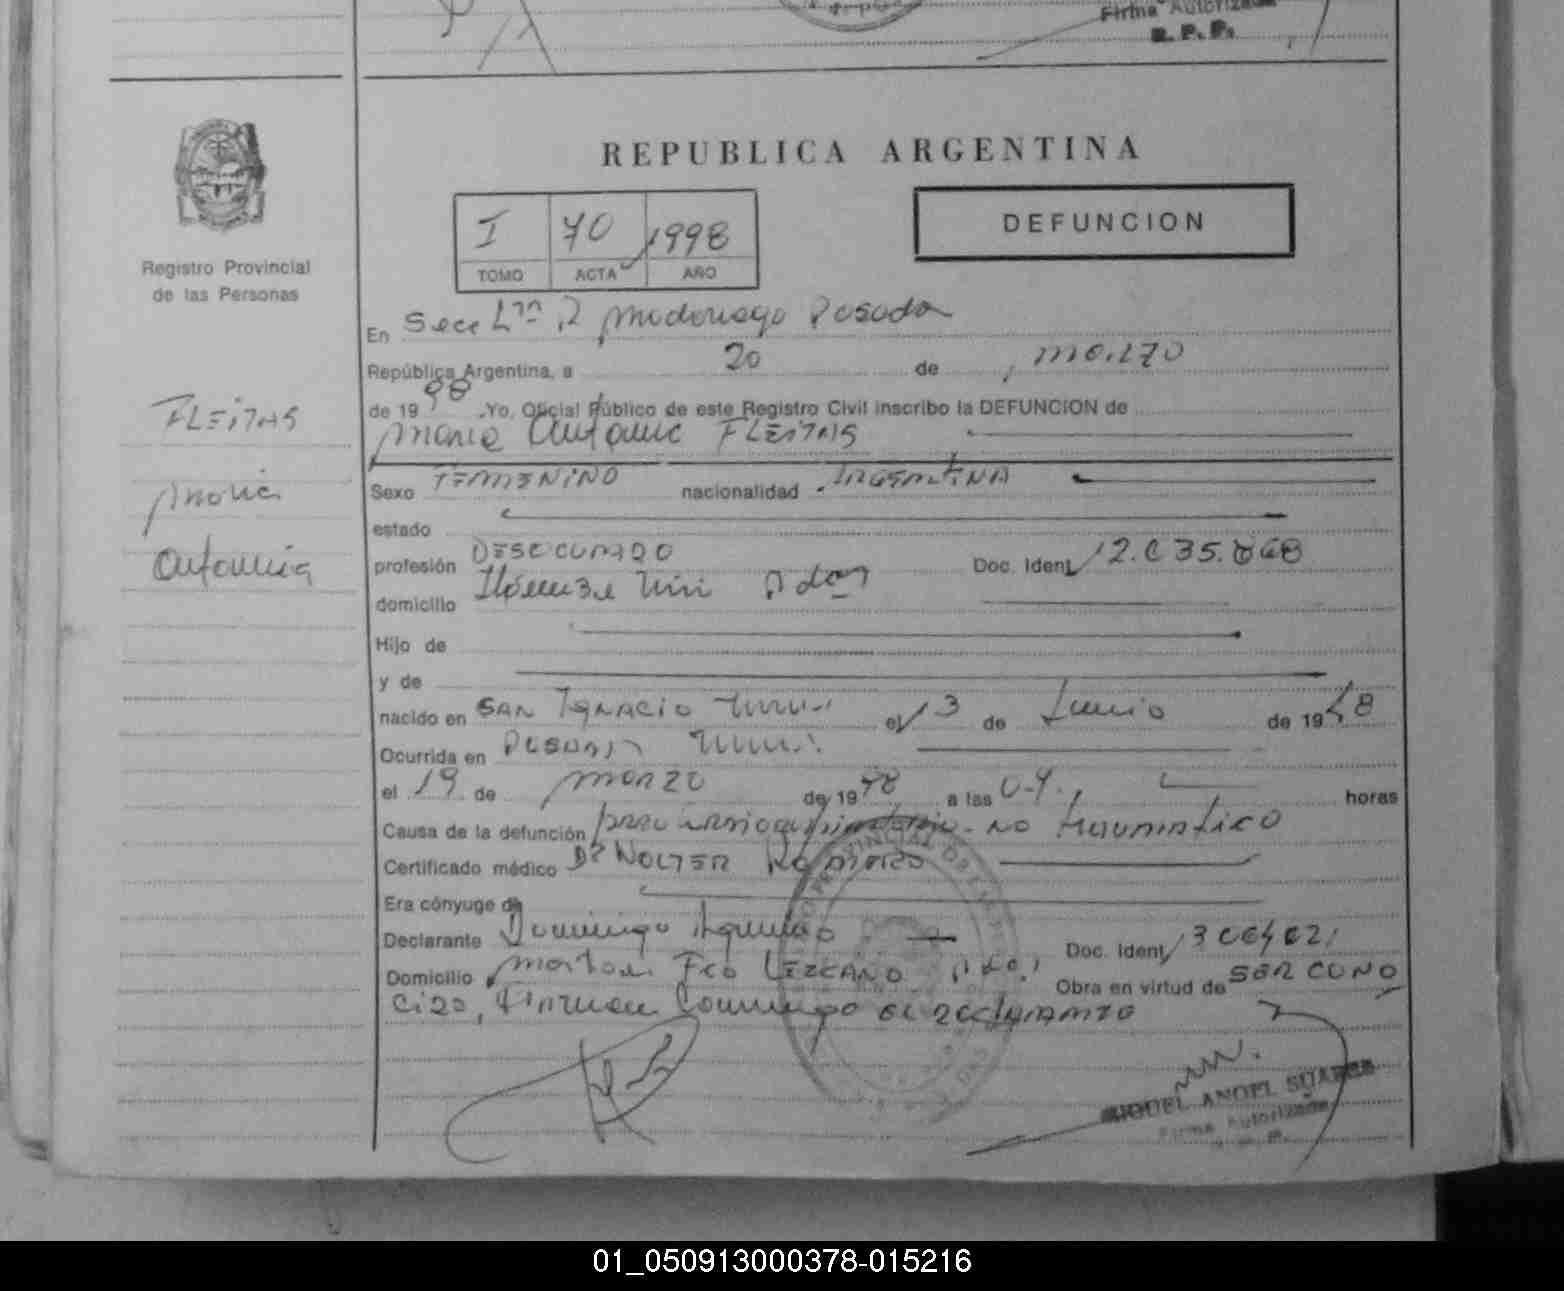 Firma Autorizada
R. P. P.
REPUBLICA ARGENTINA
I 70 1998
TOMO ACTA AÑO
DEFUNCION
Registro Provincial
de las Personas
En Secc
República Argentina, a 20 de marzo
de 1998 .Yo, Oficial Público de este Registro Civil inscribo la DEFUNCION de
Maria Antonia FLEITAS
FLEITAS
Maria
Antonia
Sexo FEMENINO nacionalidad ARGENTINA
estado
profesión DESOCUPADO Doc. Ident.
domicilio
Hijo de
y de
nacido en SAN IGNACIO el 13 de Junio de 1948
Ocurrida en POSADAS
el 19 de marzo de 1998 a las horas
Causa de la defunción paro cardiorespiratorio - NO traumatico
Certificado médico Dr WOLTER RAMIREZ
Era cónyuge de
Declarante Domingo Aquino Doc. Ident.
Domicilio Fco LEZCANO Obra en virtud de SER CONO
CIDO, Firman el declarante
MIGUEL ANGEL SUAREZ
Firma Autorizada
01_050913000378-015216